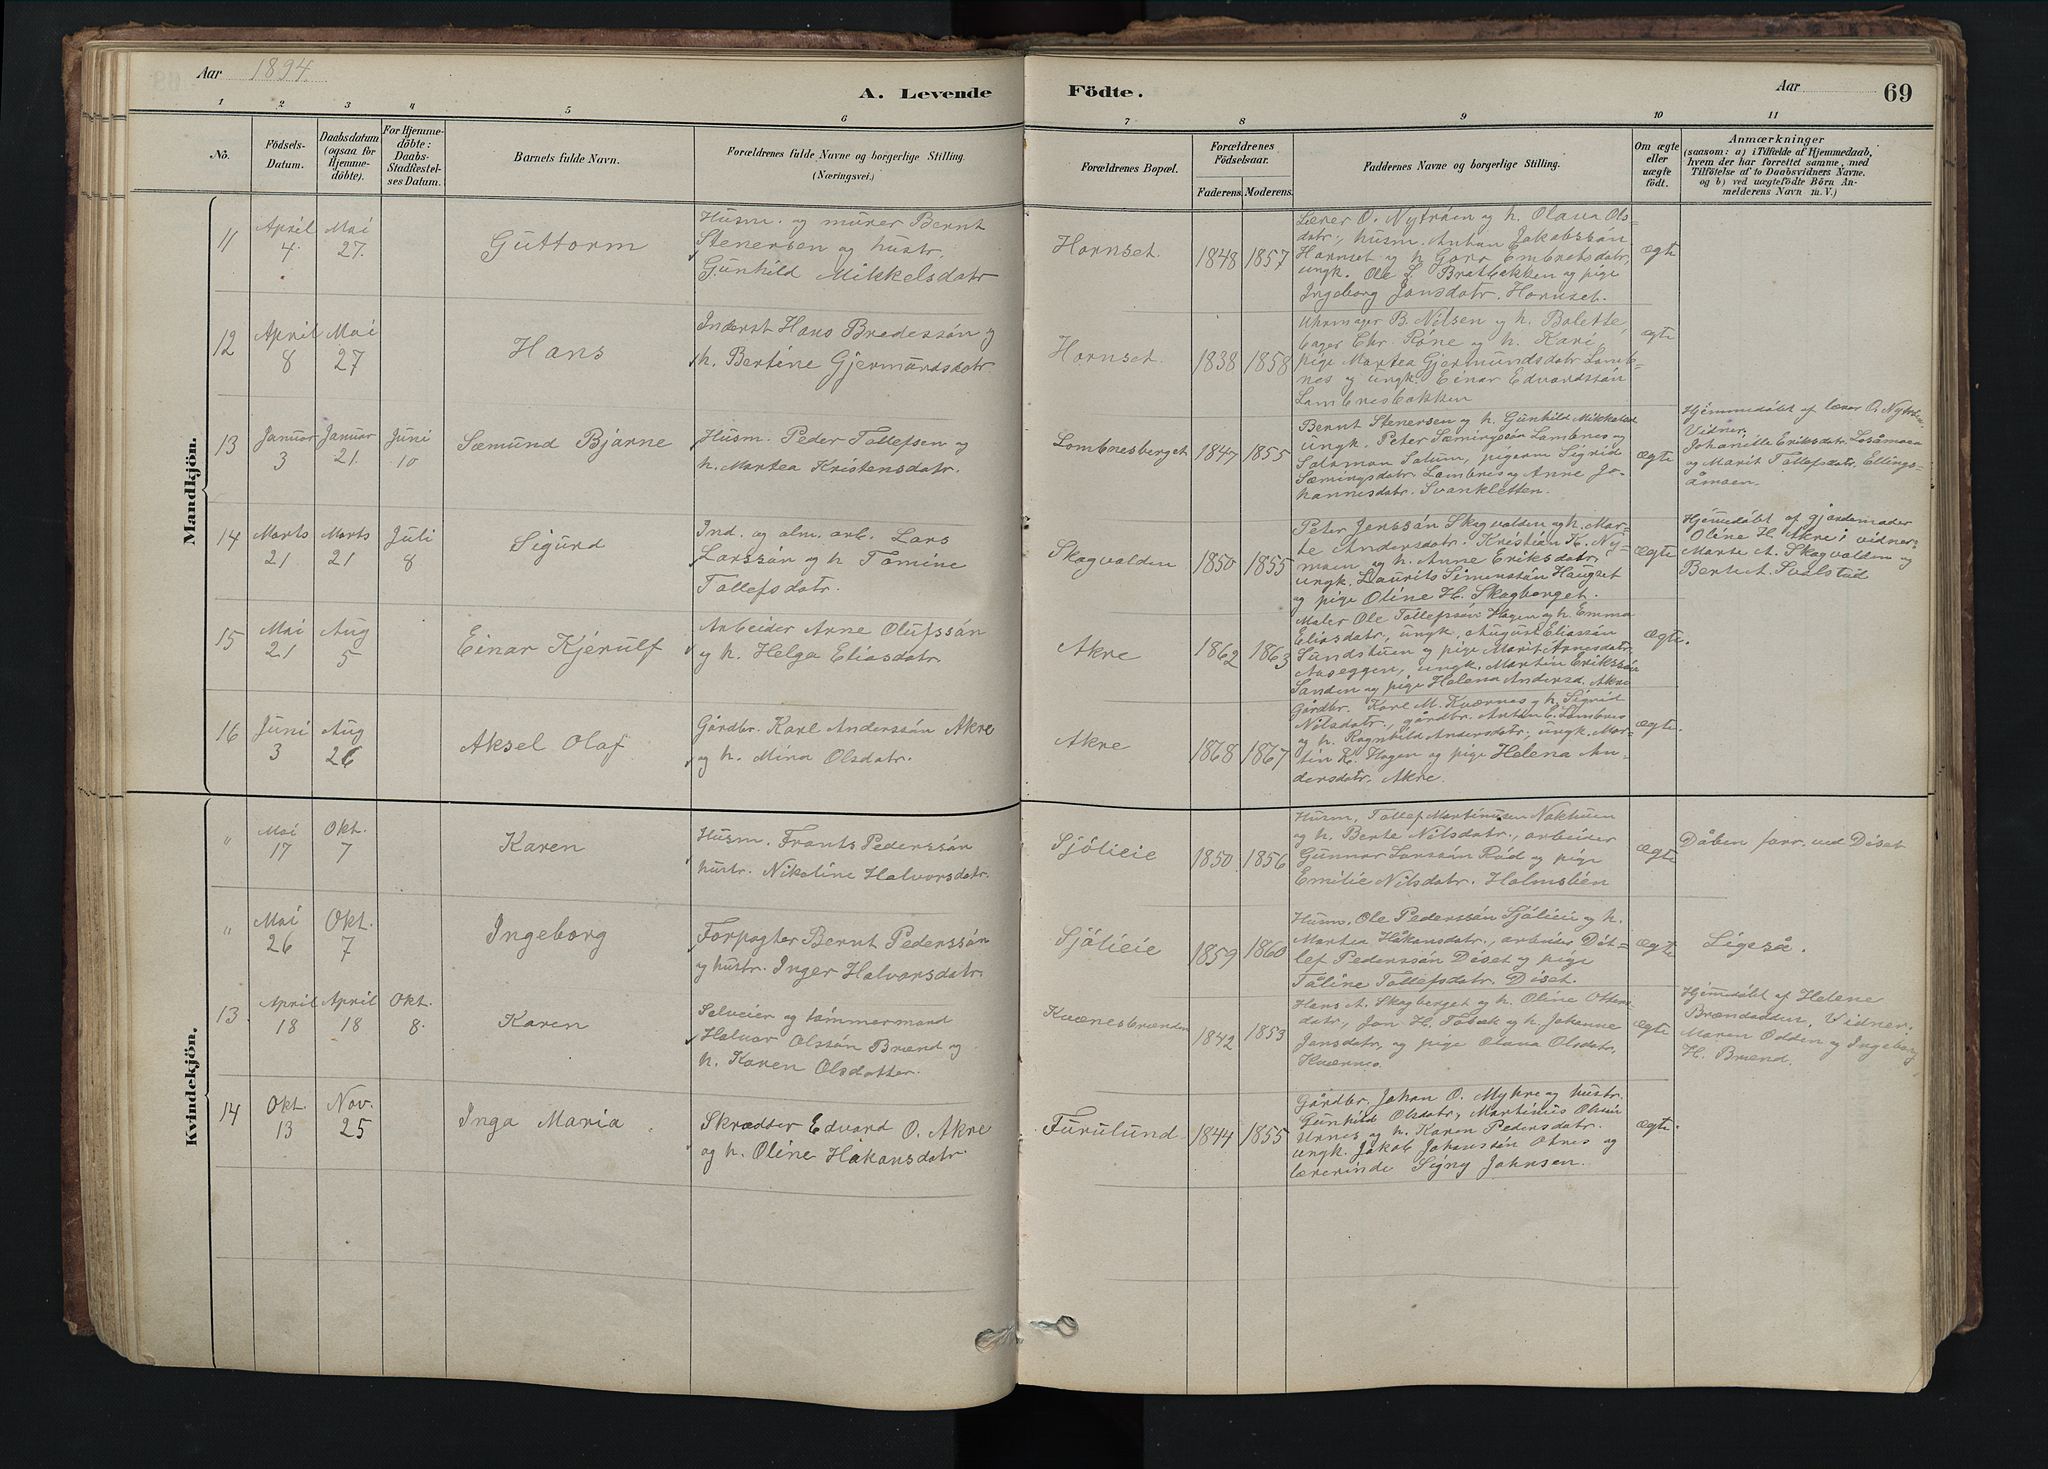 Aar 1894.
A. Levende Födte.
Aar
69
1 2 3 4 5 6 7 8 9 10 11
No.
Födsels-Datum.
Daabsdatum (ogsaa for Hjemme-döbte).
For Hjemme-döbte: Daabs-Stadfæstelses Datum.
Barnets fulde Navn.
Forældrenes fulde Navne og borgerlige Stilling. (Næringsvei.)
Forældrenes Bopæl.
Forældrenes Födselsaar.
Faderens. Moderens.
Faddernes Navne og borgerlige Stilling.
Om ægte eller uægte födt.
Anmærkninger
(saasom: a) i Tilfælde af Hjemmedaab,
hvem der har forrettet samme, med
Tilföielse af to Daabsvidners Navne.
og b) ved uægtefödte Börn An-
melderens Navn m. V.)
Mandkjön.
11
April 4.
Mai 27.
Guttorm
Husm. og murer Bernt
Stenersen og hustr.
Gunhild Mikkelsdatr
Hornset.
1848
1857
Lærer O. Nytröen og h. Olava Ols-
datr., husm. Anton Jakobssön
Hornset og h. Goro Embretsdatr,
ungk. Ole L. Bratbakken og pige
Ingeborg Jonsdatr. Hornset.
ægte
12
April 8
Mai 27
Hans
Inderst Hans Bredessön og
h. Bertine Gjermundsdatr.
Hornset.
1838
1858
Uhrmager B. Nilsen og h. Bolette,
bager Chr. Röne og h. Kari,
pige Martea Gjermundsdatr Lomb-
nes og ungk. Einar Edvardssön
Lombnesbakken
ægte
13
Januar 3
Januar 21.
Juni 10
Sæmund Bjarne
Husm. Peder Tollefsen og
h. Martea Kristensdatr.
Lombnesberget
1847
1855
Bernt Stenersen og h. Gunhild Mikkelsd.
ungk. Peter Sæmingssön Lombnes og
Salamon Solum, pigern Sigrid
Sæmingsdatr. Lombnes og Anne Jo-
hannesdatr. Svankletten.
ægte
Hjemmedöbt af lærer O. Nytröen
Vidner.
Eriksdatr.
og Marit Tollefsdatr. Ellings-
åmoen.
14
Marts 21
Marts 21
Juli 8
Sigurd
Ind. og alm. arb. Lars
Larssön og h Tomine
Tollefsdatr.
Skogvolden
1850
1855
Peter Jenssön Skogvolden og h. Mar-
te Andersdatr. Kristian K. Ny-
moen og h. Anne Eriksdatr,
ungk. Laurits Simenssön Haugset
og pige Oline H. Skogberget.
ægte
Hjemmedöbt af gjordemoder
Oline H. Akre; vidner:
Marte A. Skogvolden og
Berte A. Svalstud
15
Mai 21
Aug 5
Einar Kjerulf
Arbeider Arne Olufssön
og h. Helga Eliasdatr.
Akre
1862
1863
Maler Ole Tollefssön Hagen og h. Emma
Eliasdatr, ungk. August Eliassön
Sundstuen og pige Marit Arnesdatr.
Aaseggen, ungk. Martin Erikssön
Sanden og pige Helena Andersd. Akre
ægte.
16
Juni 3
Aug 26
Aksel Olaf
Gårdbr. Karl Anderssön Akre
og h. Mina Olsdatr.
Akre
1868
1867
Gårdbr. Karl M. Kværnes og h. Sigrid
Nilsdatr., gårdbr. Anton E. Lombnes
og h. Ragnhild Andersdatr, ungk. Mar-
tin K. Hagen og pige Helena An-
dersdatr. Akre.
ægte.
Kvindekjön.
"
Mai 17
Okt. 7
Karen
Husm. Frants Pederssön
hustr. Nikoline Halvorsdatr.
Sjölieie
1850
1856
Husm. Tollef Martinusen Nokhuen
og h. Berte Nilsdatr., arbeider
Gunnar Larssön Röd og pige
Emilie Nilsdatr. Holmslien
ægte
Dåben forr. ved Diset
"
Mai 26
Okt. 7
Ingeborg
Forpagter Bernt Pederssön
og hustr. Inger Halvorsdatr.
Sjölieie
1859
1860
Husm. Ole Pederssön Sjölieie og h.
Martea Håkansdatr., arbeider Dit-
lef Pederssön Diset og pige
Tåline Tollefsdatr. Diset.
ægte
Ligeså.
13.
April 18
April 18
Okt. 8.
Karen
Selveier og tømmermand
Halvor Olssön Brænd og
h. Karen Olsdatter.
Kværnesbrænden
1842
1853
Hans A. Skogberget og h. Oline Otters-
datr., Jon H. Tåbæk og h. Johanne
Jonsdatr, og pige Olava Olsdatr,
Kværnes.
ægte
Hjemmedöbt af Helene
Brændodden, Vidner:
Maren Odden og Ingeborg
H. Brænd.
14
Okt. 13
Nov. 25
Inga Maria
Skrædder Edvard O. Akre
og h. Oline Håkonsdatr.
Furulund
1844
1855
Gårdbr. Johan O. Myhre og hustr.
Gunhild Olsdatr, Martinius Olssön
Urnes og h. Karen Pedersdatr.
ungk. Jakob Johanssön Otnes og
lærerinde Signy Johnsen.
ægte.